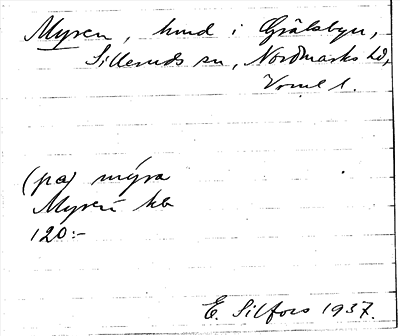 Myren, hmd i Gräsbyn,
Silleruds sn, Nordmarks hd,
Värml l.
(på) mýra
Myren kb
120:-
E. Silfors 1937.